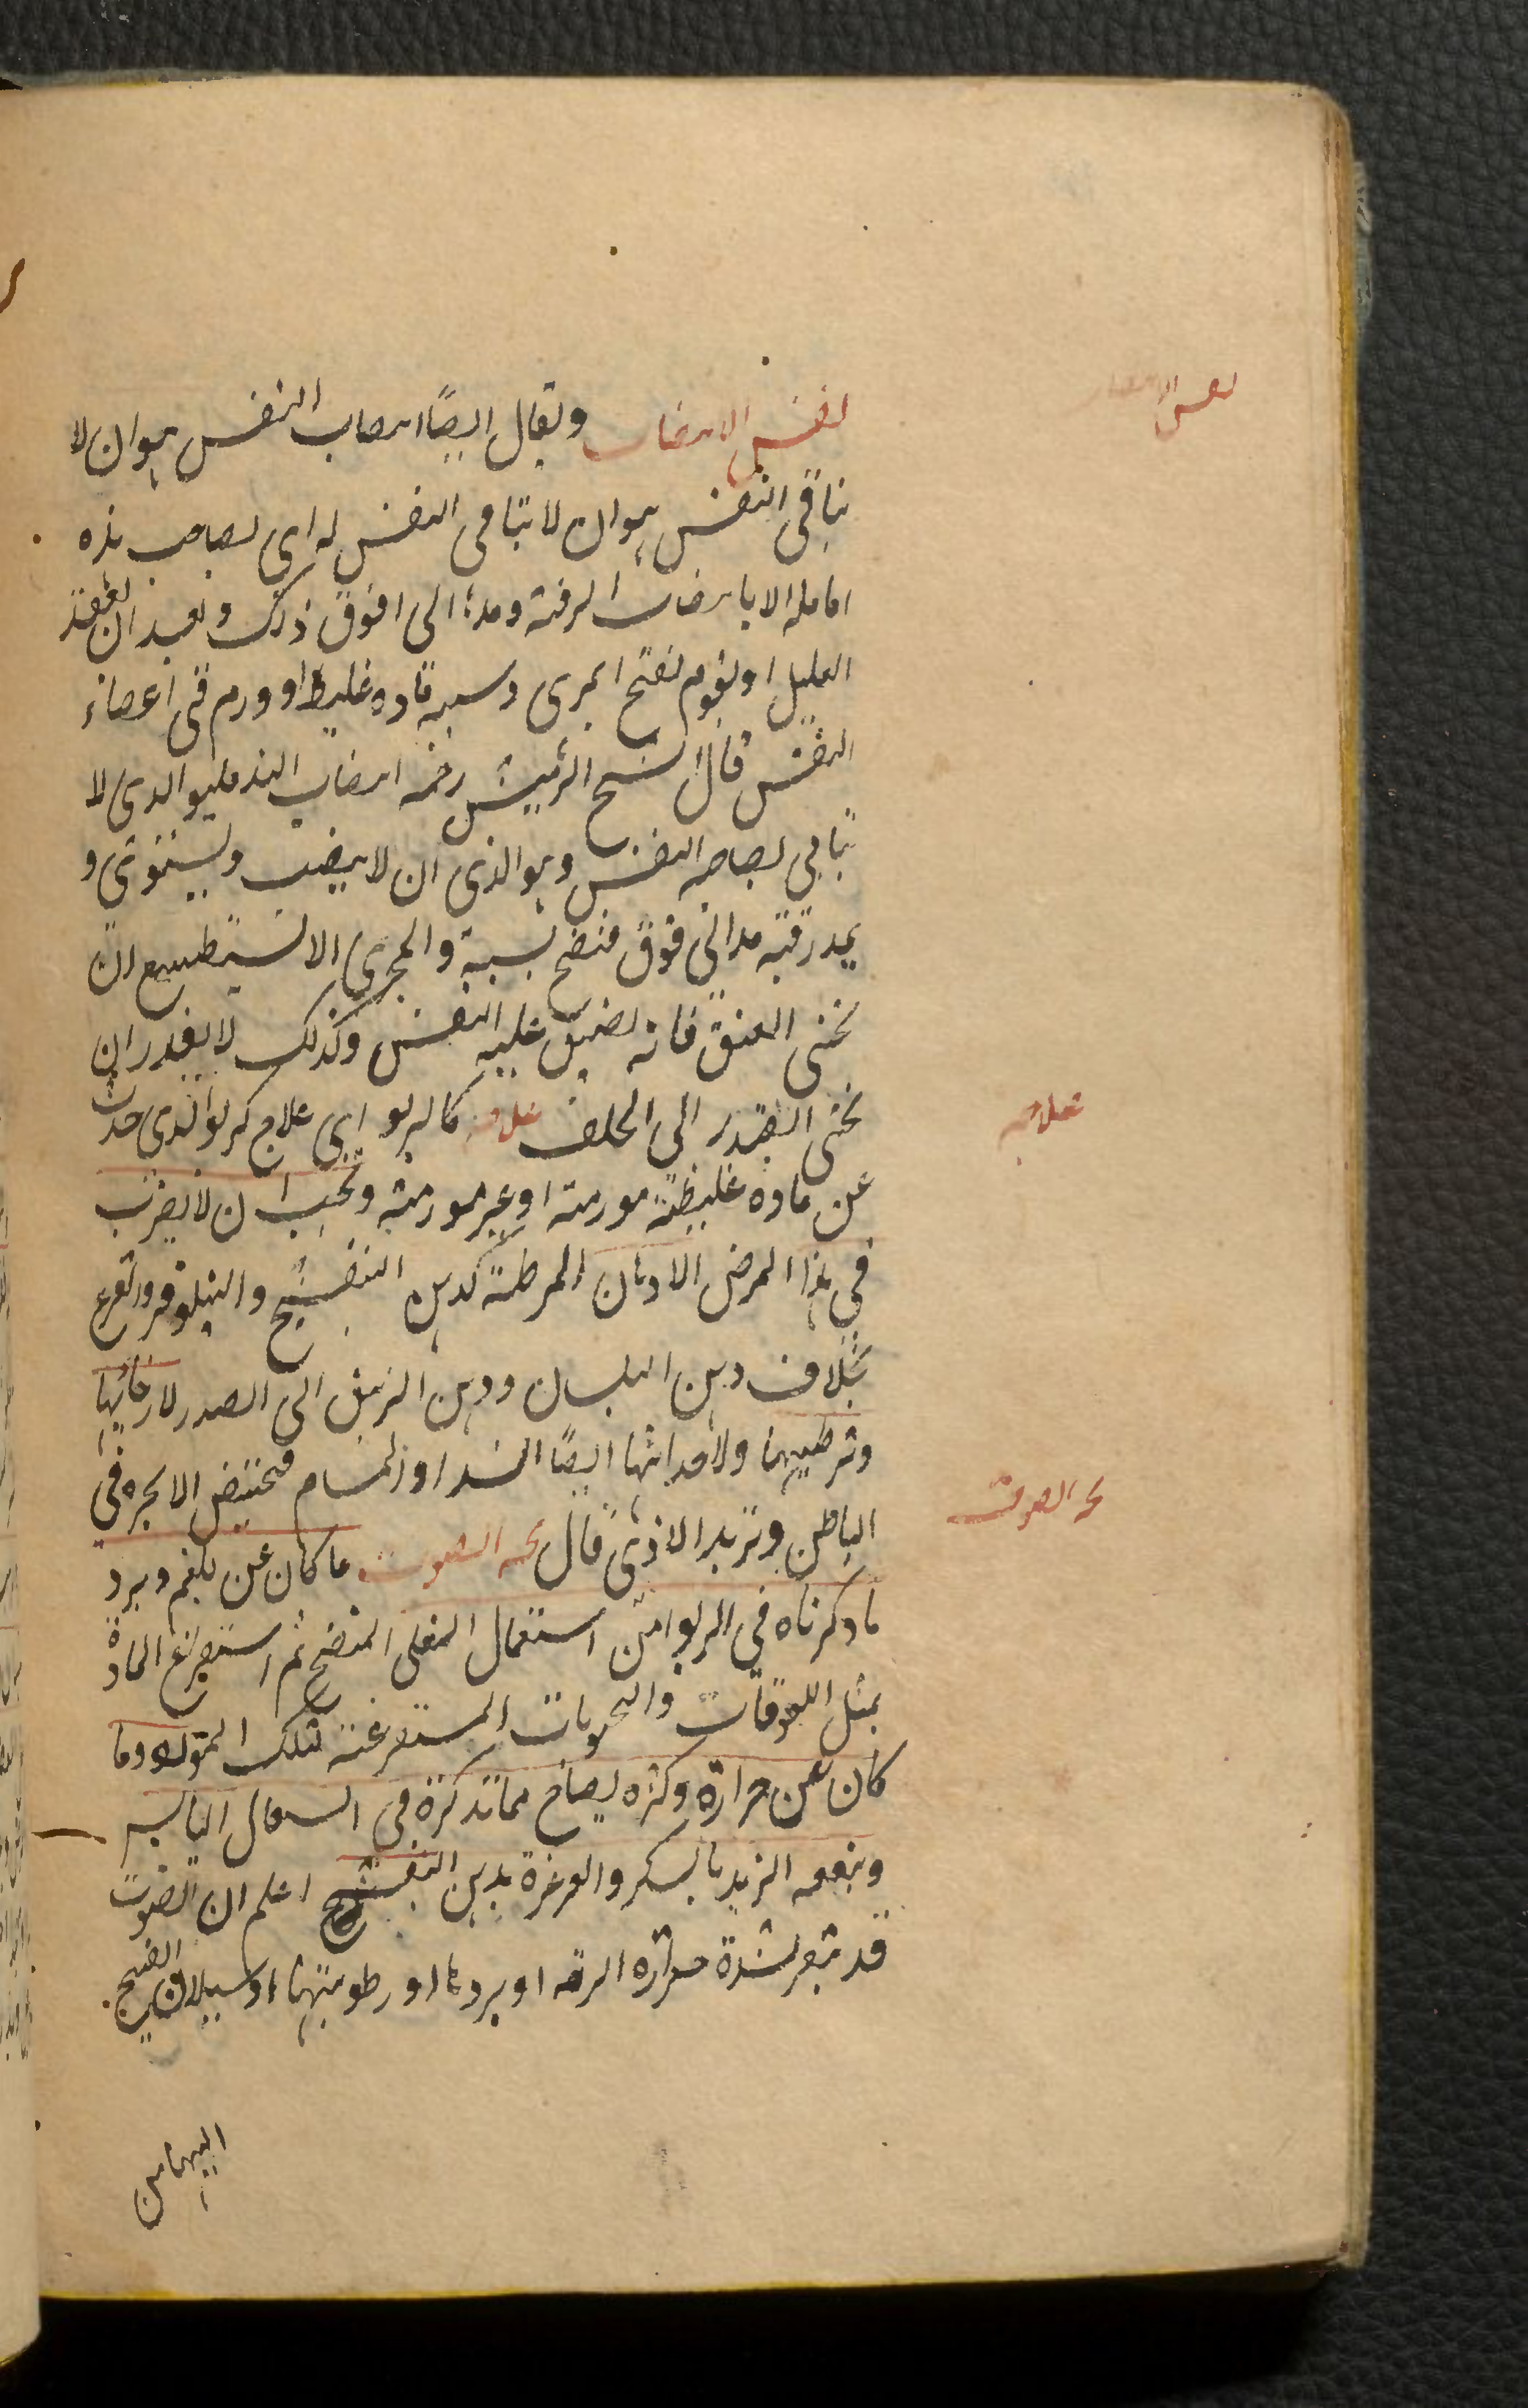 نفس الانتصاب
نفس الانتصاب ويقال ايضًا انتصاب النفس هو ان لا
يتاتى النفس هو ان لا يتاتى النفس له اى لصاحب هذه
الا بانتصاب الرقبة ومدها الى فوق ذلك وبعد ان يقعد
العليل او يقوم يفتح المجرى وسببه مادة غليظ او ورم فى اعضاء
النفس قال الشيخ الرئيس رحمه انتصاب النفس هو الذى لا
يتاتى لصاحبه النفس وهو الذى ان لا ينتصب ويستوى و
يمد رقبته مدا الى فوق فتفتح بسببه والمجرى لا يستطيع ان
يحنى العنق فانه يضيق عليه النفس وكذلك لا يقدر ان
يحنى الصدر الى الخلف علاجه كالربو اى علاج كربو الذى حدث
علاجه
عن مادة غليظة مورمة او غير مورمة ويجب ان لا يقرب
فى هذا المرض الادهان المرطبة كدهن البنفسج والنيلوفر والقرع
بخلاف دهن البلسان ودهن الزنبق الى الصدر لارخائها
وترطيبها ولاحداثها ايضًا السدد او المسام فتحتبس الابخرة فى
بحة الصوت
الباطن وتزيد الاذى قال بحة الصوت ما كان عن بلغم وبرد
ما ذكرناه فى الربو من استعمال المغلى المنضج ثم استفراغ المادة
بمثل اللعوقات والحبوبات المستفرغة لتلك المواد وما
كان عن حرارة وكثرة يصاح مما نذكره فى السعال اليابس
وينفعه الزبد بالسكر والغرغرة بدهن البنفسج اعلم ان الصوت
قد يتغير لشدة حرارة الرية او بردها او رطوبتها او سيلان القيح
اليها من